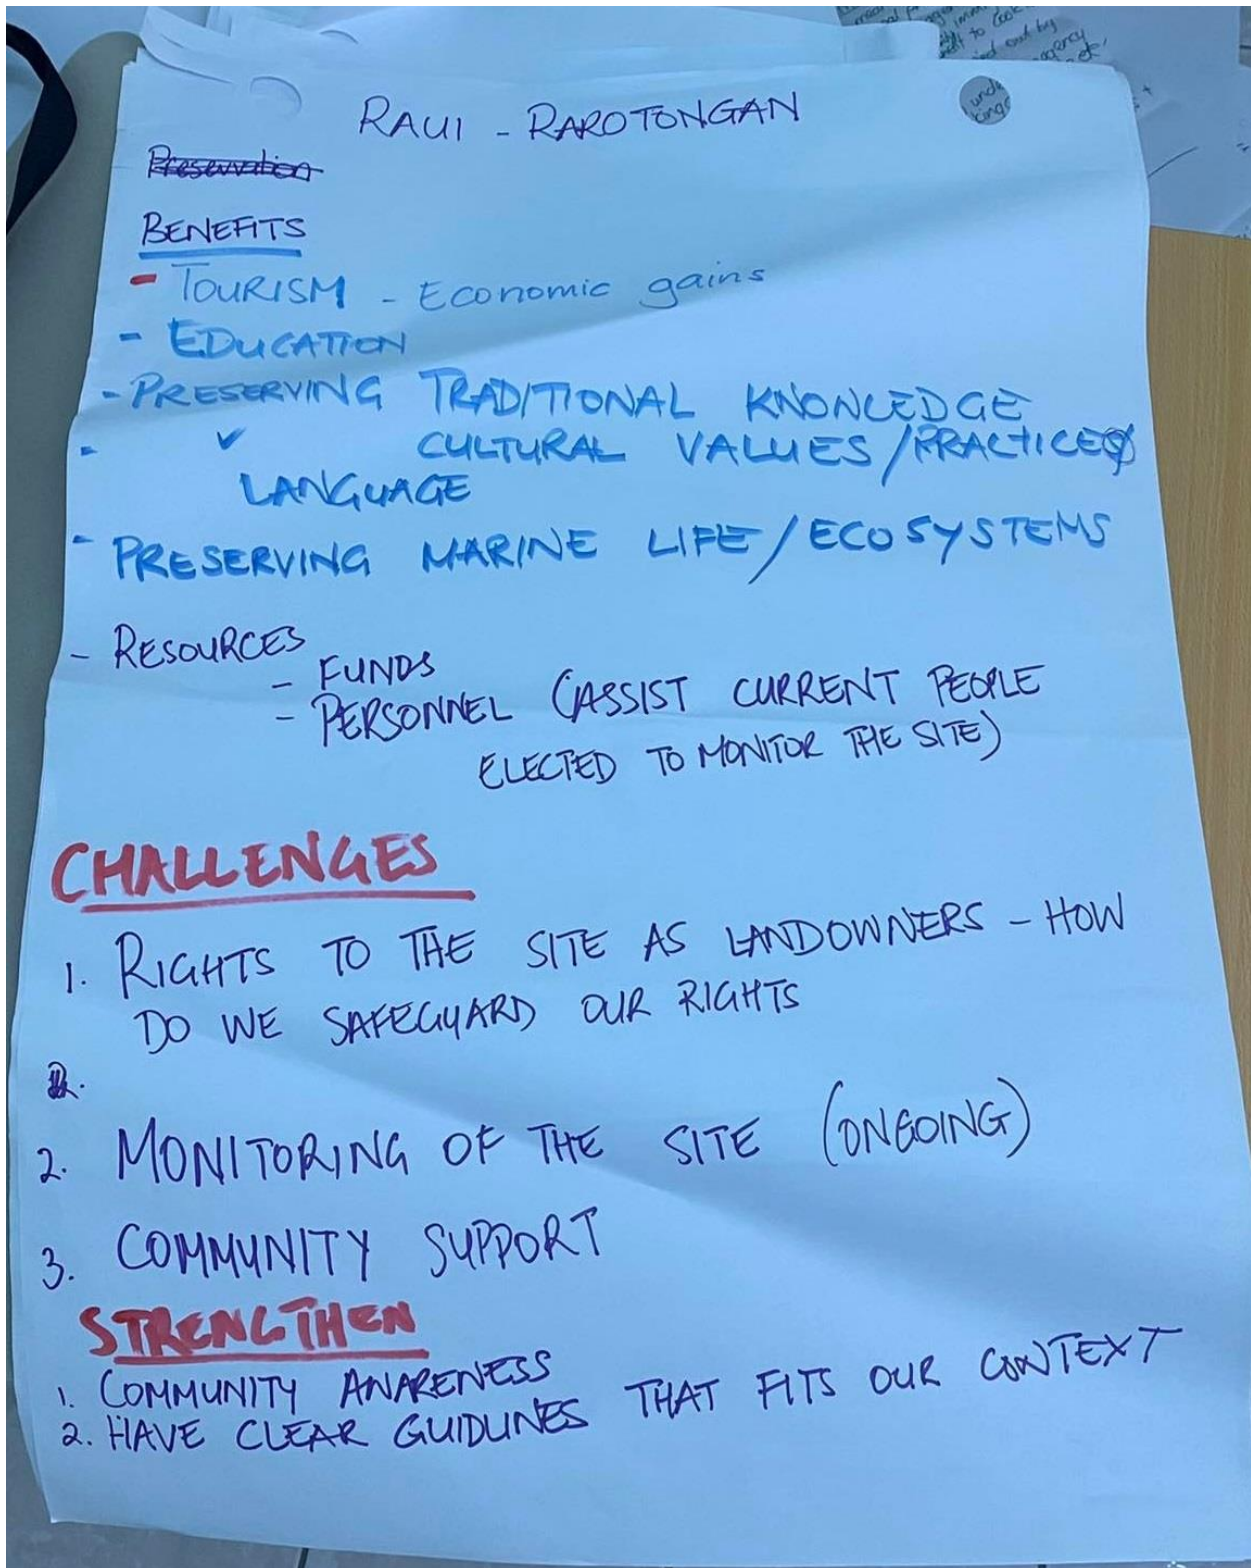 RAUI - RAROTONGAN
Preservation
BENEFITS
- TOURISM - Economic gains
- EDUCATION
- PRESERVING TRADITIONAL KNOWLEDGE
- ✓ CULTURAL VALUES/PRACTICES
LANGUAGE
- PRESERVING MARINE LIFE/ECOSYSTEMS
- RESOURCES
- FUNDS
- PERSONNEL (ASSIST CURRENT PEOPLE
ELECTED TO MONITOR THE SITE)
CHALLENGES
1. RIGHTS TO THE SITE AS LANDOWNERS - HOW
DO WE SAFEGUARD OUR RIGHTS
2.
2. MONITORING OF THE SITE (ONGOING)
3. COMMUNITY SUPPORT
STRENGTHEN
1. COMMUNITY AWARENESS
2. HAVE CLEAR GUIDLINES THAT FITS OUR CONTEXT